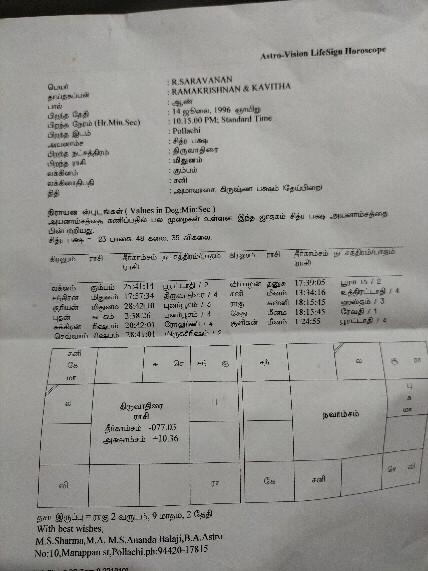 Astro-Vision LifeSign Horoscope
பெயர் : R.SARAVANAN
தாய்தகப்பன் : RAMAKRISHNAN & KAVITHA
பால் : ஆண்
பிறந்த தேதி : 14 ஜூலை, 1996 ஞாயிறு
பிறந்த நேரம் (Hr.Min.Sec) : 10.15.00 PM; Standard Time
பிறந்த இடம் : Pollachi
அயனாம்ச : சித்ர பக்ஷ
பிறந்த நட்சத்திரம் : திருவாதிரை
பிறந்த ராசி : மிதுனம்
லக்னம் : கும்பம்
லக்னாதிபதி : சனி
திதி : அமாவாசை, கிருஷ்ண பக்ஷம் (தேய்பிறை)
நிராயன ஸ்புடங்கள் ( Values in Deg:Min:Sec )
அயனாம்சத்தை கணிப்பதில் பல முறைகள் உள்ளன. இந்த ஜாதகம் சித்ர பக்ஷ அயனாம்சத்தை
பின்பற்றியது.
சித்ர பக்ஷ = 23 பாகை 48 கலை, 35 விகலை.
கிரஹம் ராசி தீர்காம்சம் கிரஹம் ராசி தீர்காம்சம்
லக்னம் கும்பம் 25:41:14 பூரட்டாதி / 2 வியாழன் தனுசு 17:39:05
சந்திரன் மிதுனம் 17:57:34 திருவாதிரை / 4 சனி மீனம் 13:14:16 உத்திரட்டாதி / 4
சூரியன் மிதுனம் 28:42:10 புனர்பூசம் / 3 ராகு கன்னி 18:15:45 ஹஸ்தம் / 3
புதன் கடகம் 3:38:26 கேது மீனம் 18:15:45 ரேவதி / 1
சுக்கிரன் ரிஷபம் 20:42:01 ரோஹிணி / 4 குளிகன் மீனம் 1:24:55 பூரட்டாதி / 4
செவ்வாய் ரிஷபம் 28:41:01
சனி
கே
மா
சு செ சந் கு
ல
திருவாதிரை
ராசி
தீர்காம்சம் -077.03
அக்ஷாம்சம் +10.36
வி
ரா
சந்
ல
நவாம்சம்
பு
மா
கே சனி
செ வி
தசா இருப்பு = ராகு 2 வருடம், 9 மாதம், 2 தேதி
With best wishes,
M.S.Sharma,M.A. M.S.Ananda Balaji,B.A.Astro
No:10,Marappan st,Pollachi.ph:94420-17815